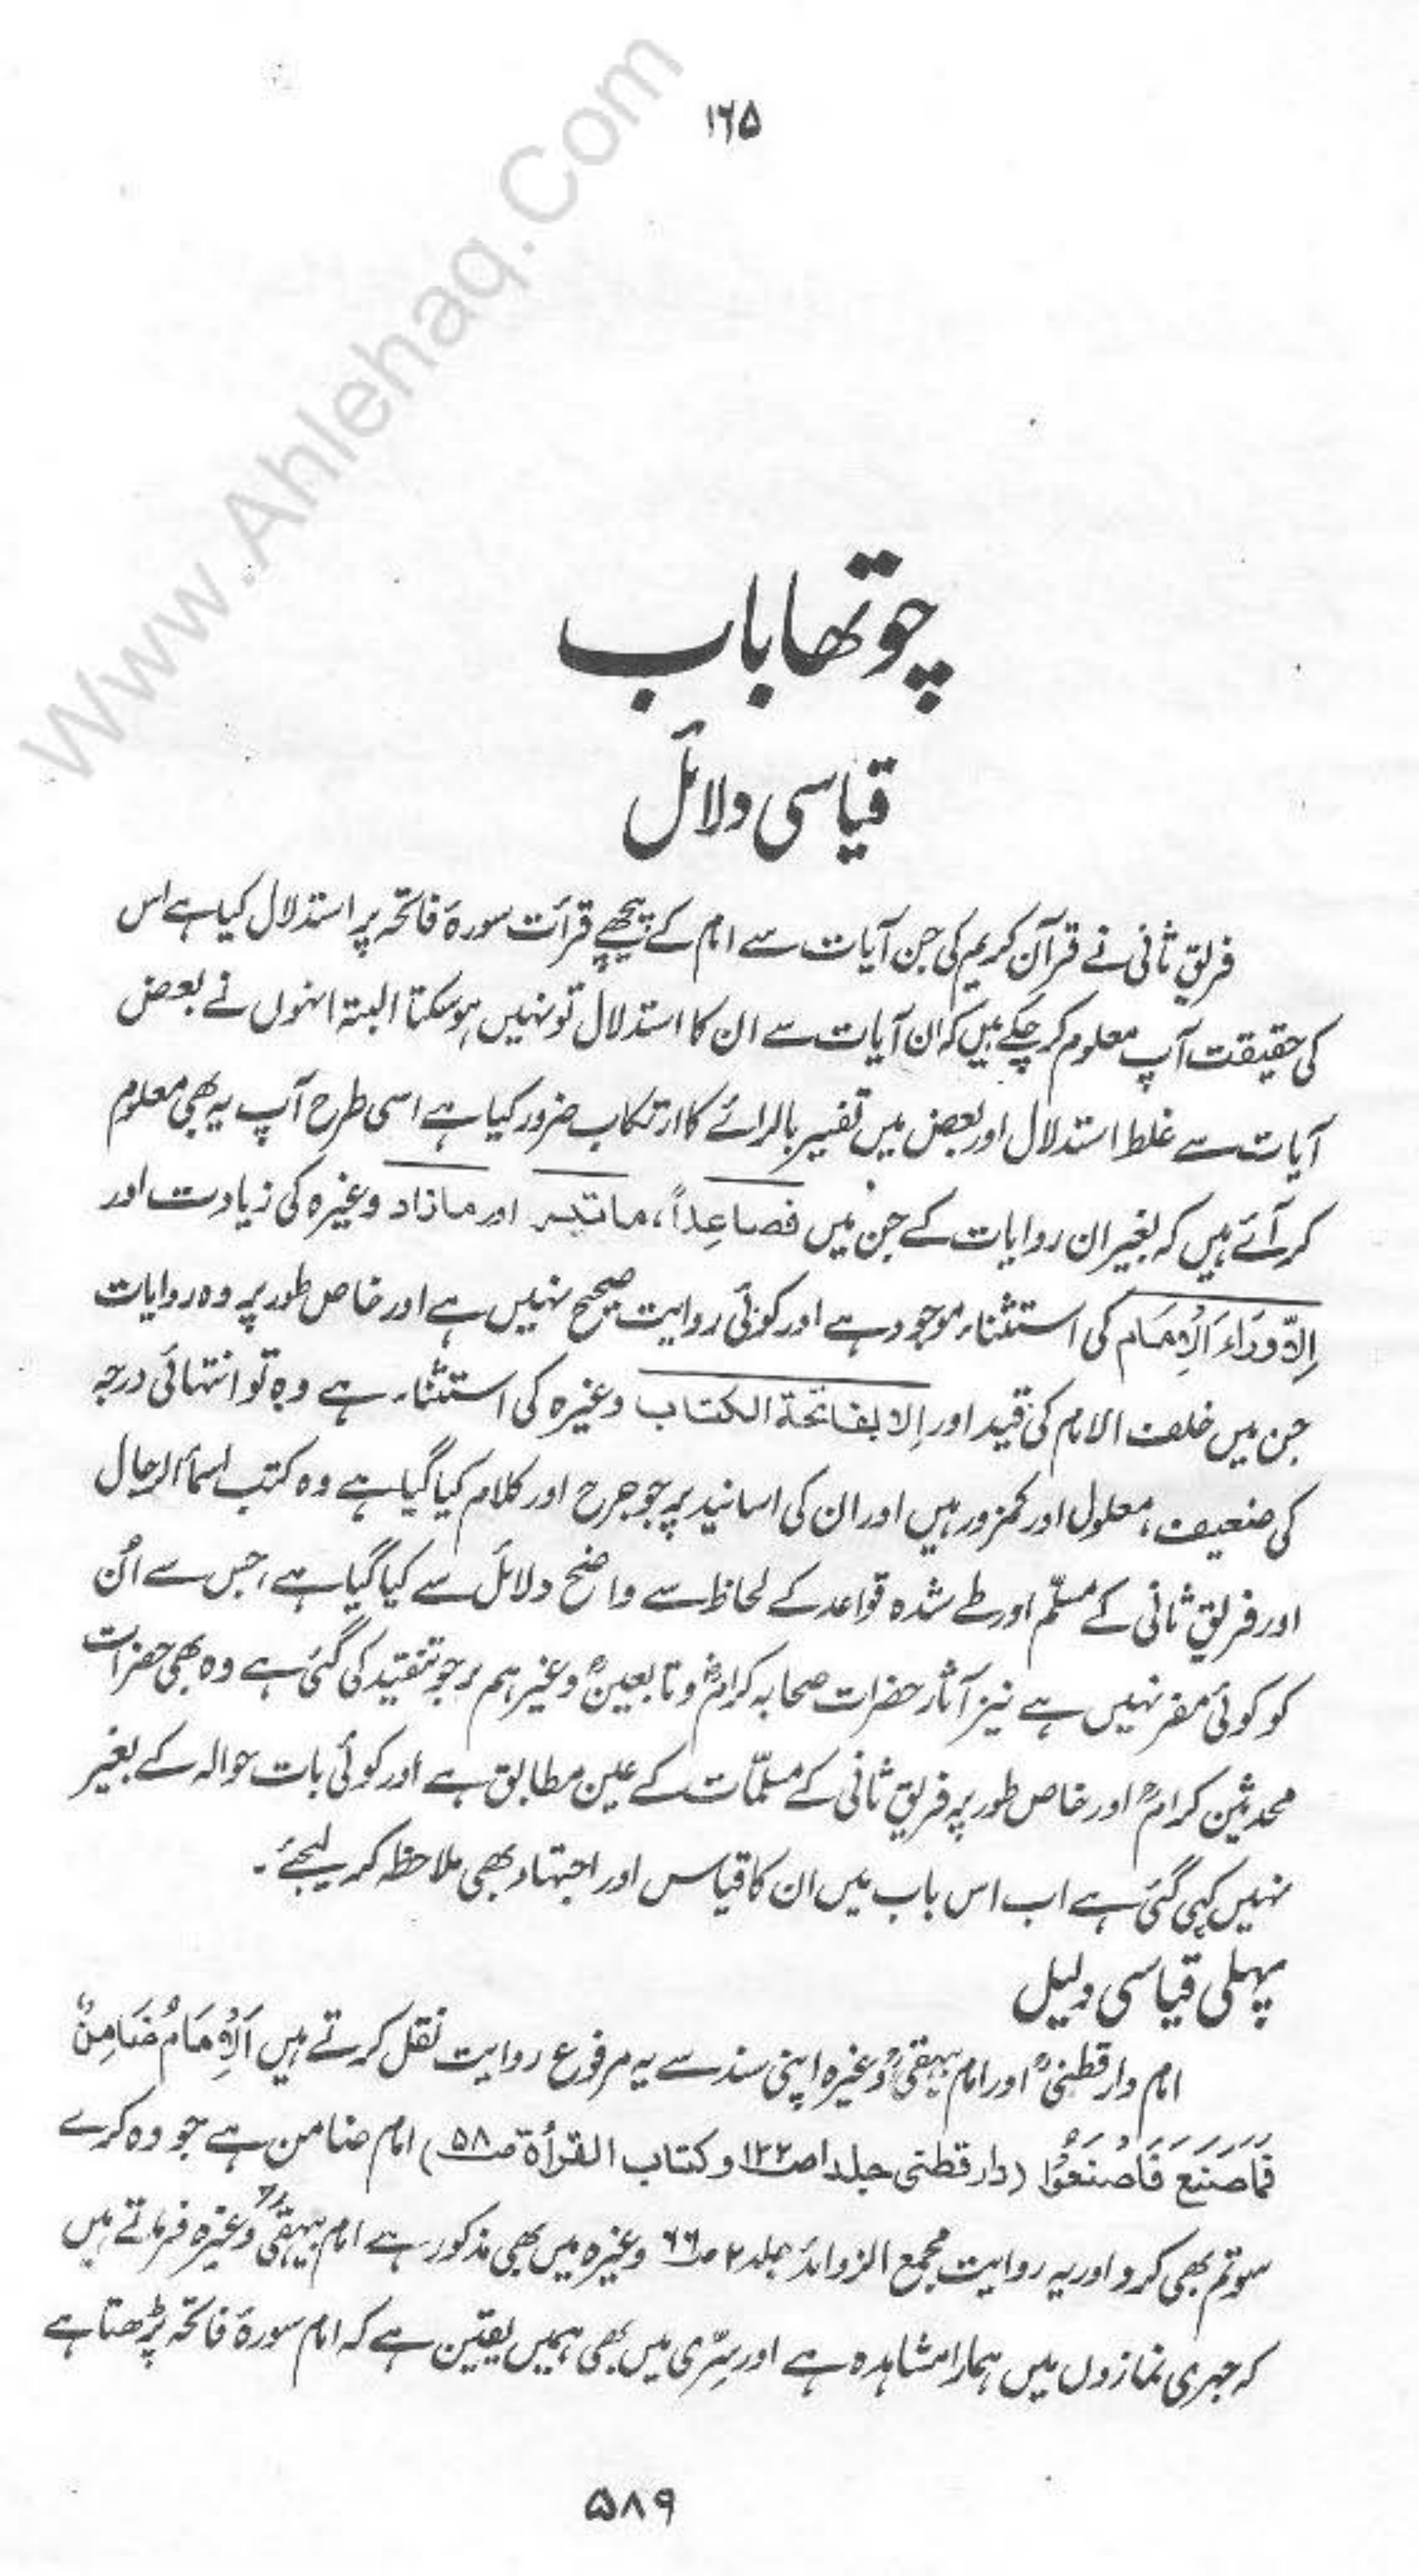 ۱۶۵
www.Ahlehaq.Com
چوتھا باب
قیاسی دلائل
فریق ثانی نے قرآن کریم کی جن آیات سے امام کے پیچھے قرأت سورۂ فاتحہ پر استدلال کیا ہے اس
کی حقیقت آپ معلوم کر چکے ہیں کہ ان آیات سے ان کا استدلال تو نہیں ہو سکتا البتہ انہوں نے بعض
آیات سے غلط استدلال اور بعض میں تفسیر بالرائے کا ارتکاب ضرور کیا ہے اسی طرح آپ یہ بھی معلوم
کر آئے ہیں کہ بغیر ان روایات کے جن میں فصاعِداً، ماتیسر اور مازاد وغیرہ کی زیادت اور
اِلَّا وَرَاءَ الْاِمَام کی استثناء موجود ہے اور کوئی روایت صحیح نہیں ہے اور خاص طور پر وہ روایات
جن میں خلف الامام کی قید اور اِلا بفاتحۃ الکتاب وغیرہ کی استثناء ہے وہ تو انتہائی درجہ
کی ضعیف، معلول اور کمزور ہیں اور ان کی اسانید پر جو جرح اور کلام کیا گیا ہے وہ کتب اسماء الرجال
اور فریق ثانی کے مسلّم اور طے شدہ قواعد کے لحاظ سے واضح دلائل سے کیا گیا ہے، جس سے اُن
کو کوئی مفر نہیں ہے نیز آثار حضرات صحابہ کرامؓ و تابعینؒ وغیرہم پر جو تنقید کی گئی ہے وہ بھی حضرات
محدثین کرامؒ اور خاص طور پر فریق ثانی کے مسلّمات کے عین مطابق ہے اور کوئی بات حوالہ کے بغیر
نہیں کہی گئی ہے اب اس باب میں ان کا قیاس اور اجتہاد بھی ملاحظہ کر لیجئے۔
پہلی قیاسی دلیل
امام دارقطنیؒ اور امام بیہقیؒ وغیرہ اپنی سند سے یہ مرفوع روایت نقل کرتے ہیں اَلْاِمَامُ ضَامِنٌ
فَمَاصَنَعَ فَاصْنَعُوْا (دارقطنی جلد۱ ص۱۲۲ و کتاب القرأۃ ص۵۸) امام ضامن ہے جو وہ کرے
سو تم بھی کرو اور یہ روایت مجمع الزوائد جلد ۲ ص۶۶ وغیرہ میں بھی مذکور ہے امام بیہقیؒ وغیرہ فرماتے ہیں
کہ جہری نمازوں میں ہمارا مشاہدہ ہے اور سِرّی میں بھی ہمیں یقین ہے کہ امام سورۂ فاتحہ پڑھتا ہے
۵۸۹